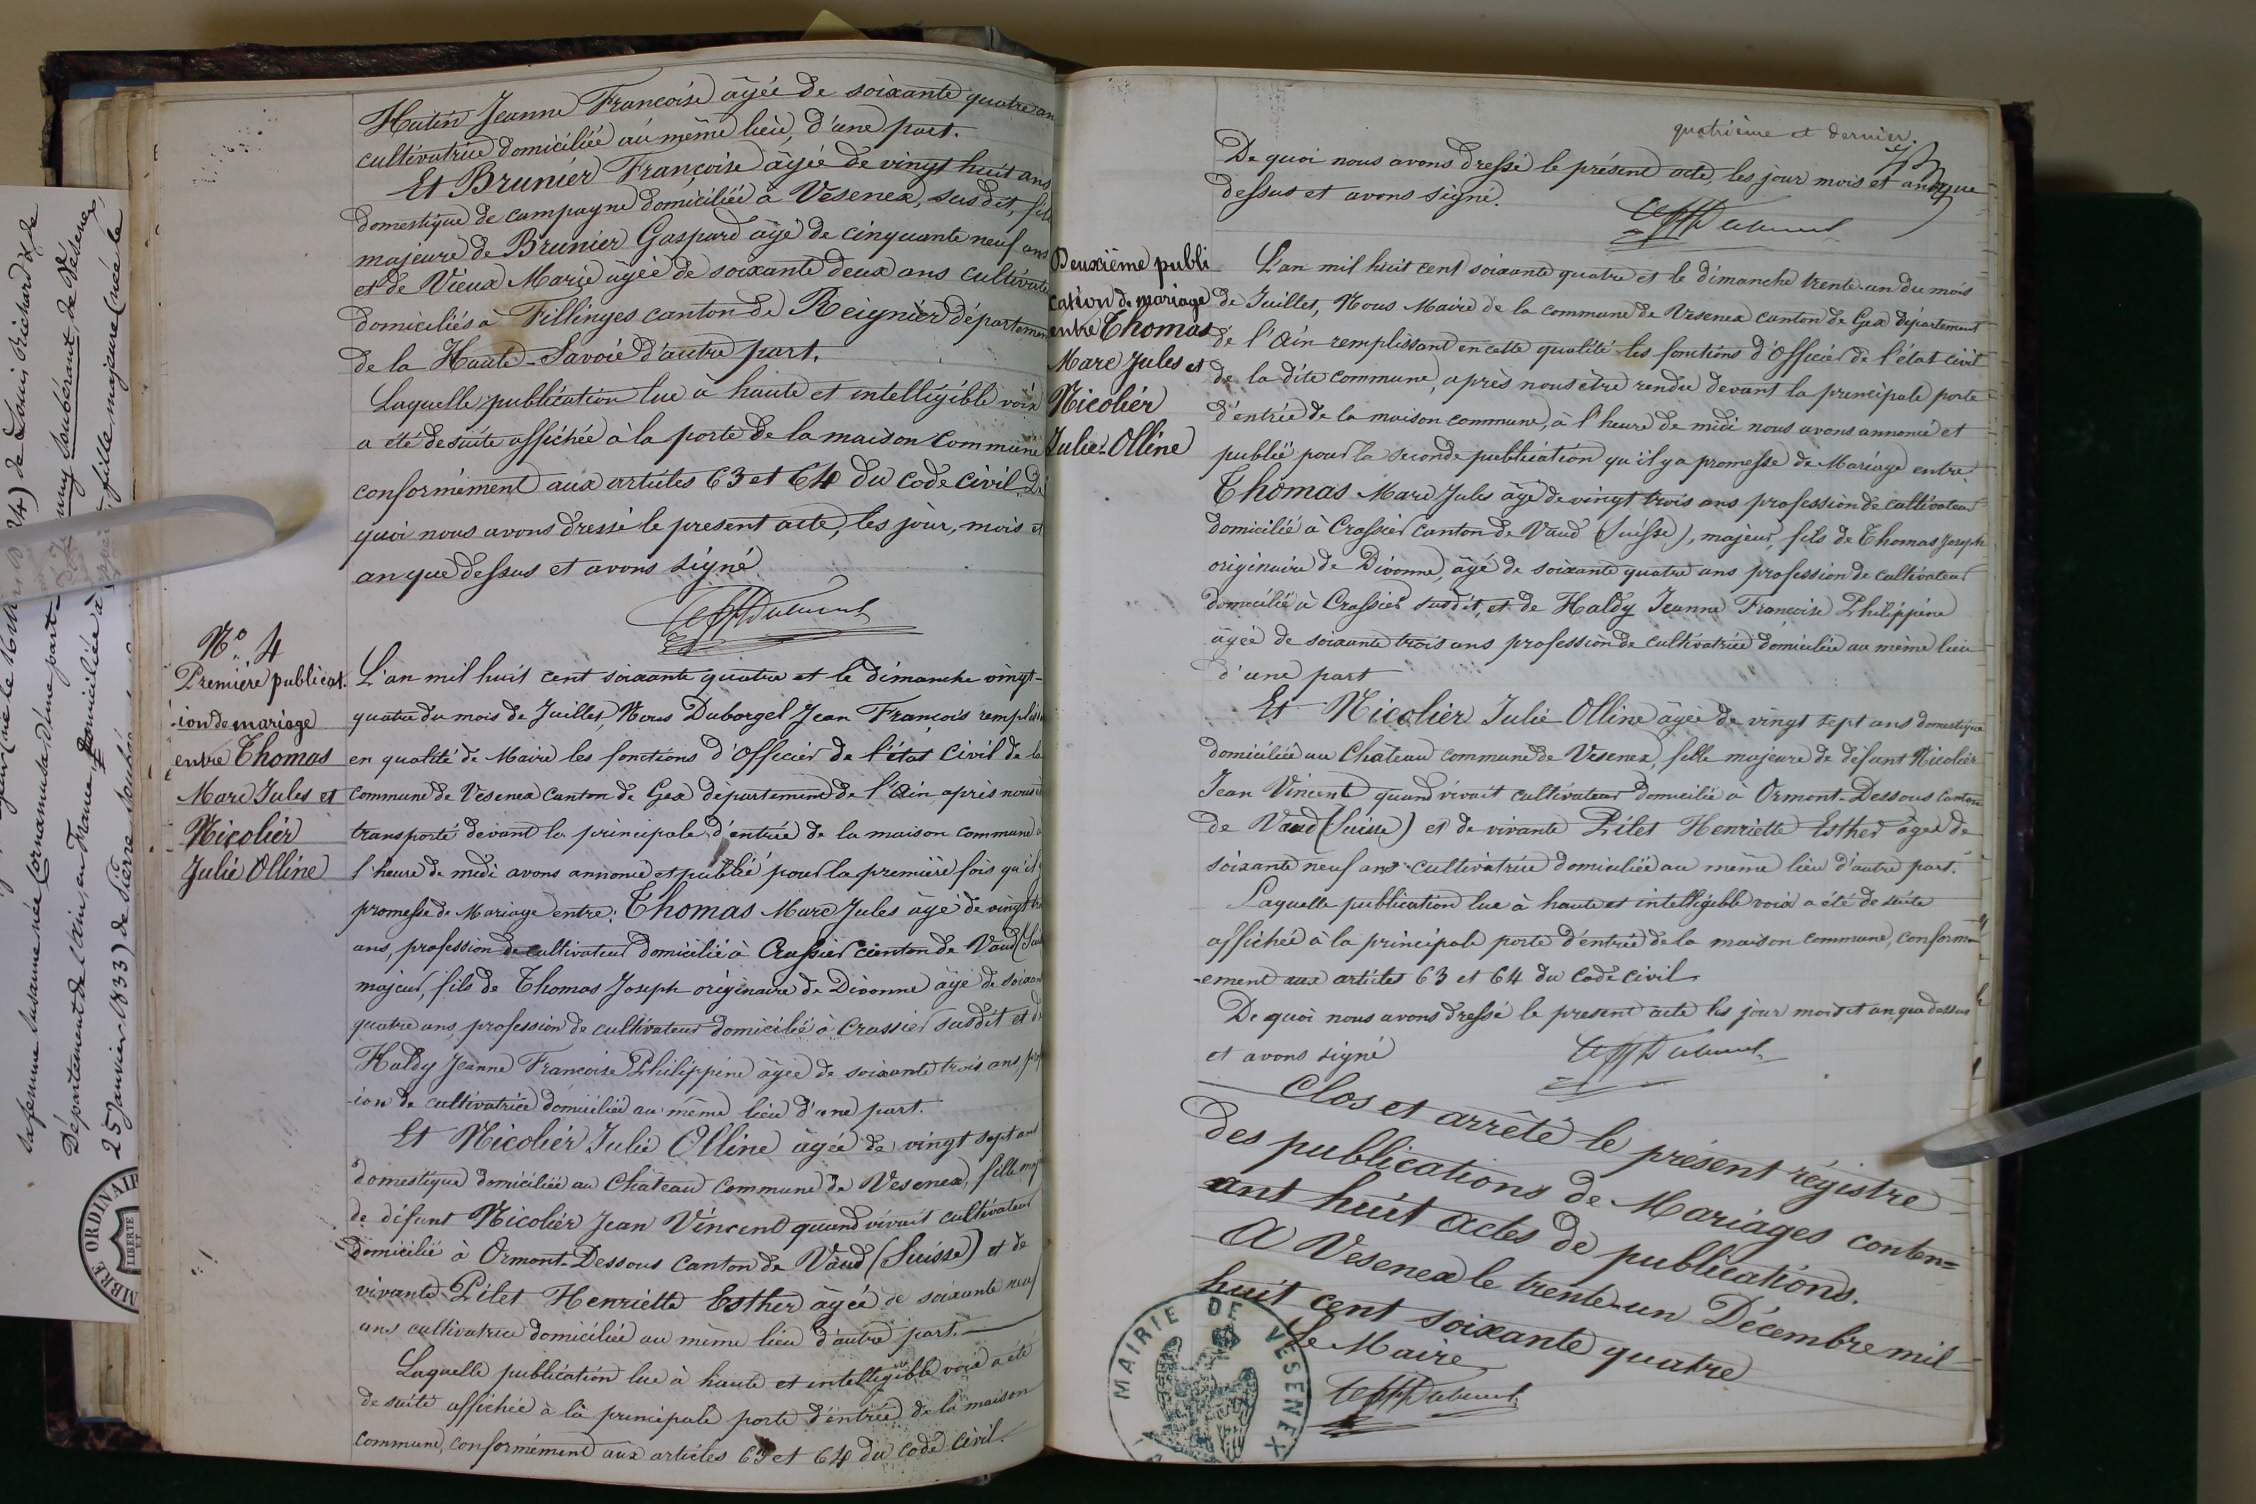 Hutin Jeanne Françoise âgée de soixante quatre an
cultivatrice domiciliée au même lieu, d'une part.
Et Brunier Françoise âgée de vingt huit ans
domestique de campagne domiciliée à Vesenex, susdit, fille
majeure de Brunier Gaspard âgé de cinquante neuf ans
et de Vieux Marie âgée de soixante deux ans cultivate
domiciliés à Fillinges canton de Reignier départemen
de la Haute-Savoie d'autre part.
Laquelle publication lue à haute et intelligible voix
a été desuite affichée à la porte de la maison commune
conformément aux articles 63 et 64 du code civil. De
quoi nous avons dressé le present acte, les jour, mois et
an que dessus et avons signé
N° 4
Première publicat-
-ion de mariage
entre Thomas
Marc Jules et
Nicolier
Julie Olline
L'an mil huit cent soixante quatre et le dimanche vingt-
quatre du mois de Juillet, Nous Duborgel Jean François rempliss
en qualité de Maire les fonctions d'Officier de l'état Civil de la
commune de Vesenex Canton de Gex département de l'Ain après nous
transporté devant la principale d'entrée de la maison commune à
l'heure de midi avons annoncé et publié pour la première fois qu'il
promesse de Mariage entre: Thomas Marc Jules âgé de vingt tro
ans, profession de cultivateur domicilié à Crassier canton de Vaud (Sui
majeur, fils de Thomas Joseph originaire de Divonne âgé de soixan
quatre ans, profession de cultivateur domicilié à Crassier susdit et de
Haldy Jeanne Françoise Philippine âgée de soixante trois ans, prof
-ion de cultivatrice domiciliée au même lieu d'une part.
Et Nicolier Julie Olline âgée de vingt sept ans
domestique domiciliée au Château Commune de Vesenex, fille maj
de défunt Nicolier Jean Vincent quand vivait cultivateur
domicilié à Ormont-Dessous Canton de Vaud (Suisse) et de
vivante Pilet Henriette Esther âgée de soixante neuf
ans cultivatrice domiciliée au même lieu d'autre part.
Laquelle publication lue à haute et intelligible voix a été
de suite affichée à la principale porte d'entrée de la maison
commune, conformément aux articles 63 et 64 du code civil.
quatrième et dernier.
De quoi nous avons dressé le présent acte, les jour mois et an que
dessus et avons signé.
Deuxième publi
cation de mariage
entre Thomas
Marc Jules et
Nicolier
Julie-Olline
L'an mil huit cent soixante quatre et le dimanche trente-un du mois
de Juillet, Nous Maire de la commune de Vesenex canton de Gex département
de l'Ain remplissant en cette qualité les fonctions d'Officier de l'état civil
de la dite commune, après nous être rendu devant la principale porte
d'entrée de la maison commune, à l'heure de midi nous avons annoncé et
publié pour la seconde publication qu'il y a promesse de Mariage entre
Thomas Marc Jules âgé de vingt trois ans profession de cultivateur
domicilié à Crassier Canton de Vaud (Suisse), majeur, fils de Thomas Joseph
originaire de Divonne, âgé de soixante quatre ans profession de cultivateur
domicilié à Crassier susdit, et de Haldy Jeanne Françoise Philippine
âgée de soixante trois ans profession de cultivatrice domiciliée au même lieu
d'une part
Et Nicolier Julie Olline âgée de vingt sept ans domestique
domiciliée au Château commune de Vesenex, fille majeure de défunt Nicolier
Jean Vincent quand vivait cultivateur domicilié à Ormont-Dessous Canton
de Vaud (Suisse) et de vivante Pilet Henriette Esther âgée de
soixante neuf ans cultivatrice domiciliée au même lieu d'autre part.
Laquelle publication lue à haute et intelligible voix a été de suite
affichée à la principale porte d'entrée de la maison commune, conform-
-ement aux articles 63 et 64 du code civil
De quoi nous avons dressé le present acte les jour mois et an que dessus
et avons signé
Clos et arrêté le présent régistre
des publications de Mariages conten=
ant huit actes de publications.
A Vesenex le trente-un Décembre mil-
huit cent soixante quatre
Le Maire
MAIRIE DE VESENEX
sa femme Susanne née Cornamusaz d'une part
Département de l'Ain, en France domiciliée à
25 Janvier 1833) de Pierre
de Louis Richard et de
Soubérant, de Vésenex,
fille majeure (née le
ORDINAIR
LIBERTE
ET